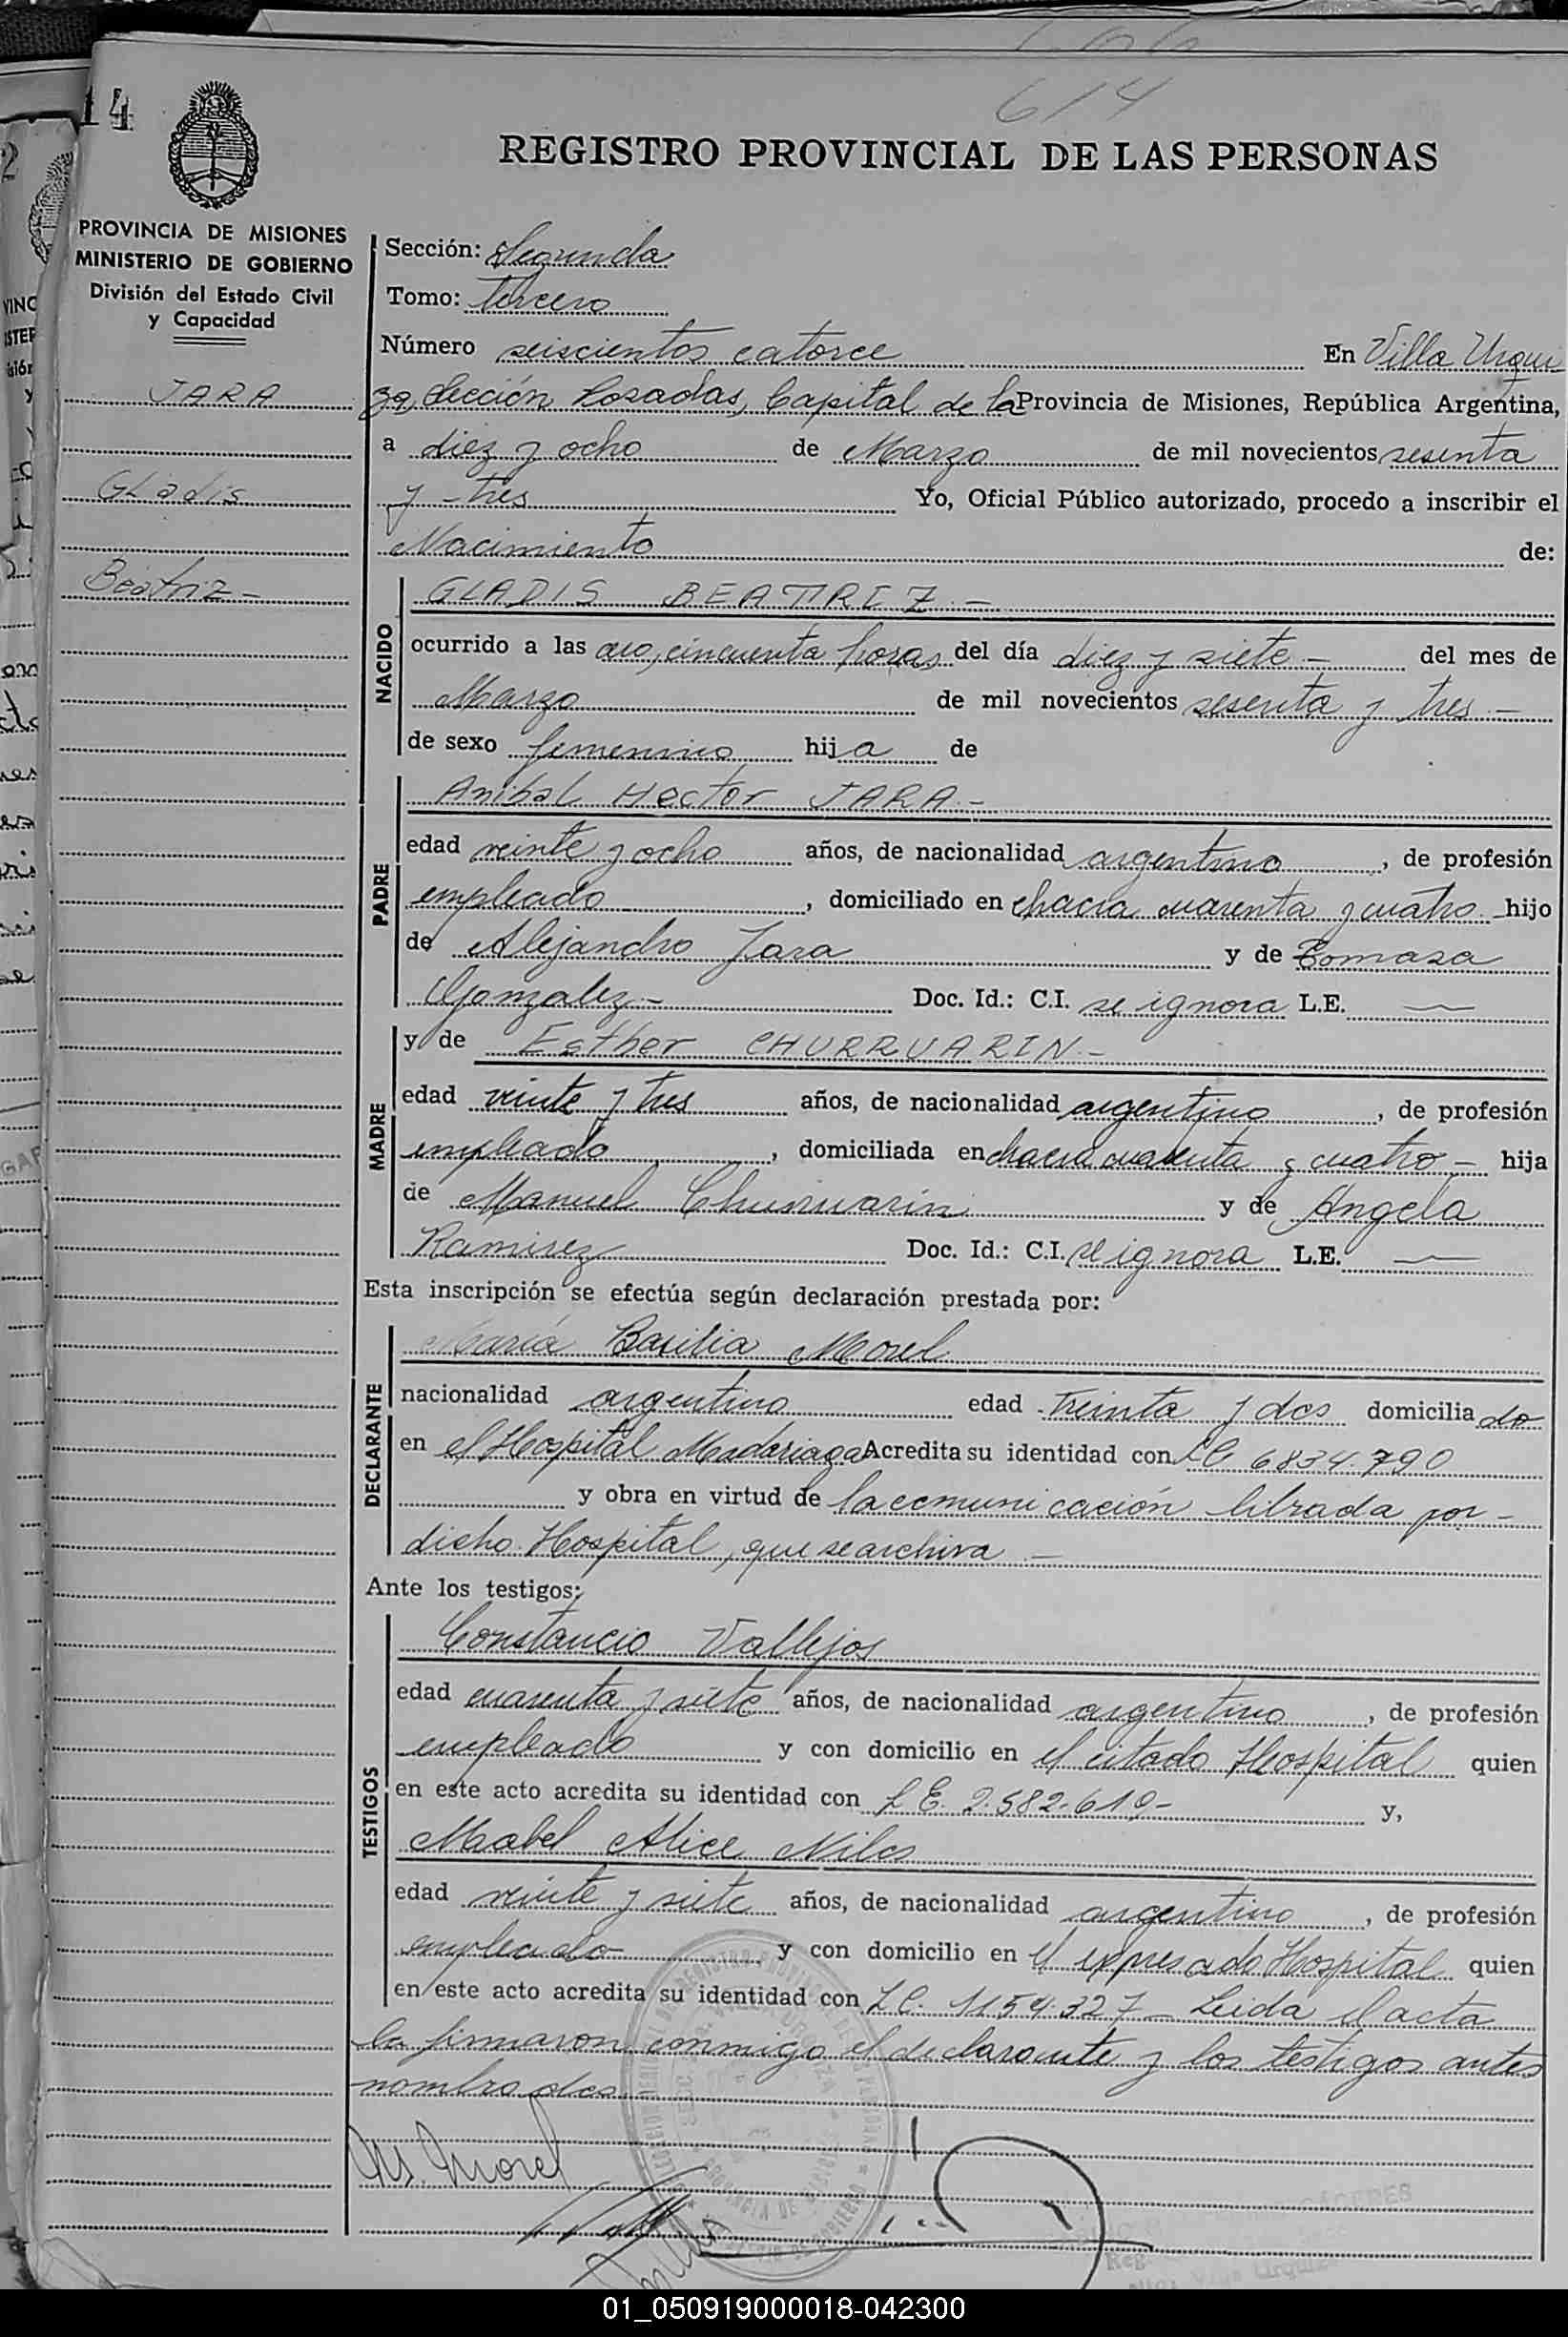 614
14
REGISTRO PROVINCIAL DE LAS PERSONAS
PROVINCIA DE MISIONES
MINISTERIO DE GOBIERNO
División del Estado Civil
y Capacidad
JARA
Gladis
Beatriz -
Sección: Segunda
Tomo: tercero
Número seiscientos catorce En Villa Urqui
za, Sección Posadas, Capital de la Provincia de Misiones, República Argentina,
a diez y ocho de Marzo de mil novecientos sesenta
y tres Yo, Oficial Público autorizado, procedo a inscribir el
Nacimiento de:
NACIDO
GLADIS BEATRIZ -
ocurrido a las cincuenta horas del día diez y siete - del mes de
Marzo de mil novecientos sesenta y tres -
de sexo femenino hija de
PADRE
Anibal Hector JARA -
edad veinte y ocho años, de nacionalidad argentino, de profesión
empleado, domiciliado en chacra cuarenta y cuatro hijo
de Alejandro Jara y de Tomasa
Gonzalez - Doc. Id.: C.I. se ignora L.E. —
MADRE
y de Esther CHURRUARIN -
edad veinte y tres años, de nacionalidad argentina, de profesión
empleada, domiciliada en chacra cuarenta y cuatro - hija
de Manuel Churruarin y de Angela
Ramirez Doc. Id.: C.I. se ignora L.E. —
Esta inscripción se efectúa según declaración prestada por:
DECLARANTE
María Basilia Morel
nacionalidad argentina edad treinta y dos domiciliado
en el Hospital Madariaga Acredita su identidad con LC 6834.790
y obra en virtud de la comunicación librada por -
dicho Hospital, que se archiva -
Ante los testigos:
TESTIGOS
Constancio Vallejos
edad cuarenta y siete años, de nacionalidad argentino, de profesión
empleado y con domicilio en el citado Hospital quien
en este acto acredita su identidad con L E. 2.582.619- y,
Mabel Alice
edad veinte y siete años, de nacionalidad argentino, de profesión
empleado y con domicilio en el expresado Hospital quien
en este acto acredita su identidad con L C. 1154.327 - Leida el acta
la firmaron conmigo el declarante y los testigos antes
nombrados -
M. Morel
01_050919000018-042300